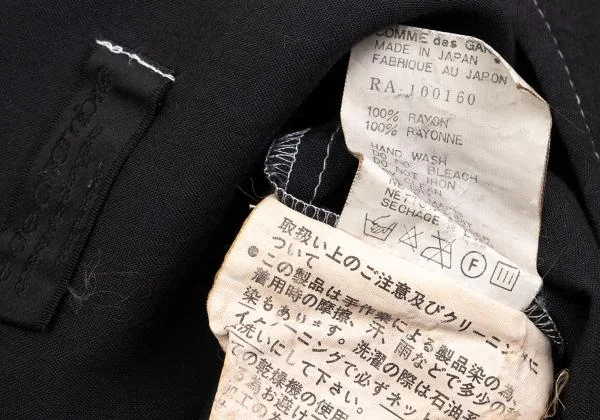 COMME des GAR
MADE IN JAPAN
FABRIQUE AU JAPON
RA-100160
100% RAYON
100% RAYONNE
HAND WASH
DO NOT BLEACH
DO NOT IRON
SECHAGE
F
取扱い上のご注意及びクリーニングに
ついて
●この製品は手作業による製品染の為、
着用時の摩擦、汗、雨などで多少の
染もあります。洗濯の際は石油系
イクリーニングで必ずネッ
洗いにして下さい。
の乾燥機の使用
る為お避け
加工の為